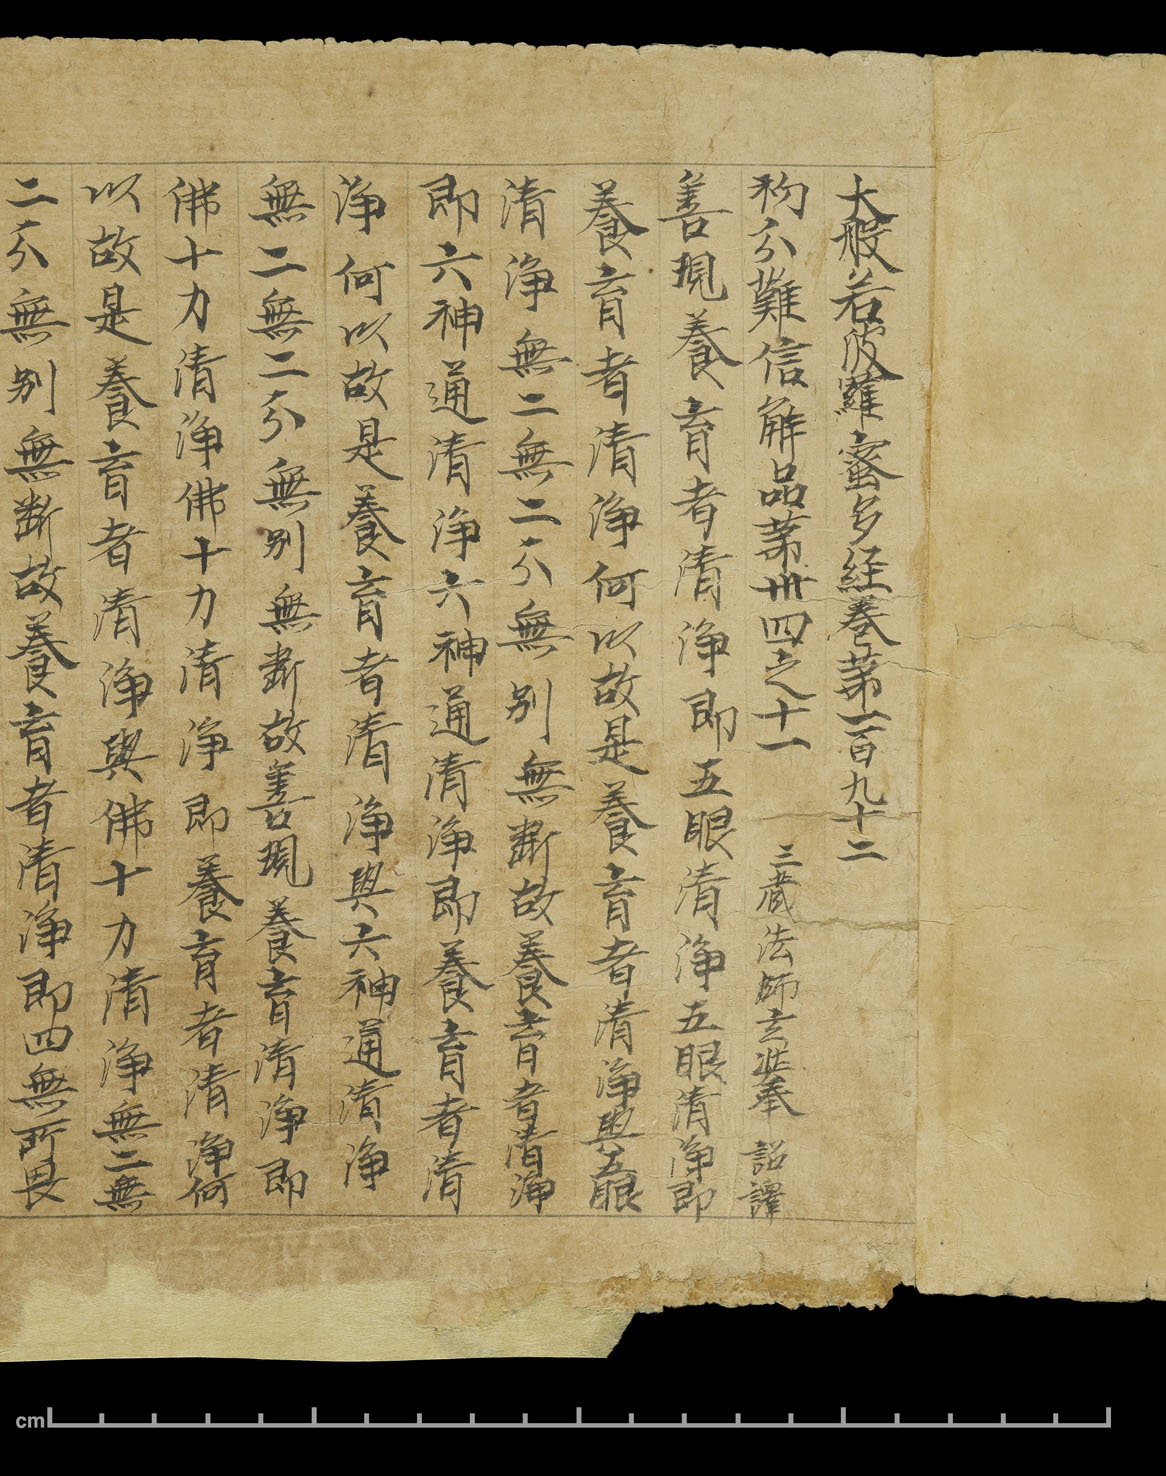 大般若波羅蜜多経卷苐二百九十二
初分難信解品苐卅四之十一 三藏法師玄奘奉 詔譯
善現養育者清淨即五眼清淨五眼清淨即
養育者清淨何以故是養育者清淨與五眼
清淨無二無二分無別無斷故養育者清淨
即六神通清淨六神通清淨即養育者清
淨何以故是養育者清淨與六神通清淨
無二無二分無別無斷故善現養育清淨即
佛十力清淨佛十力清淨即養育者清淨何
以故是養育者清淨與佛十力清淨無二無
二分無別無斷故養育者清淨即四無所畏
cm